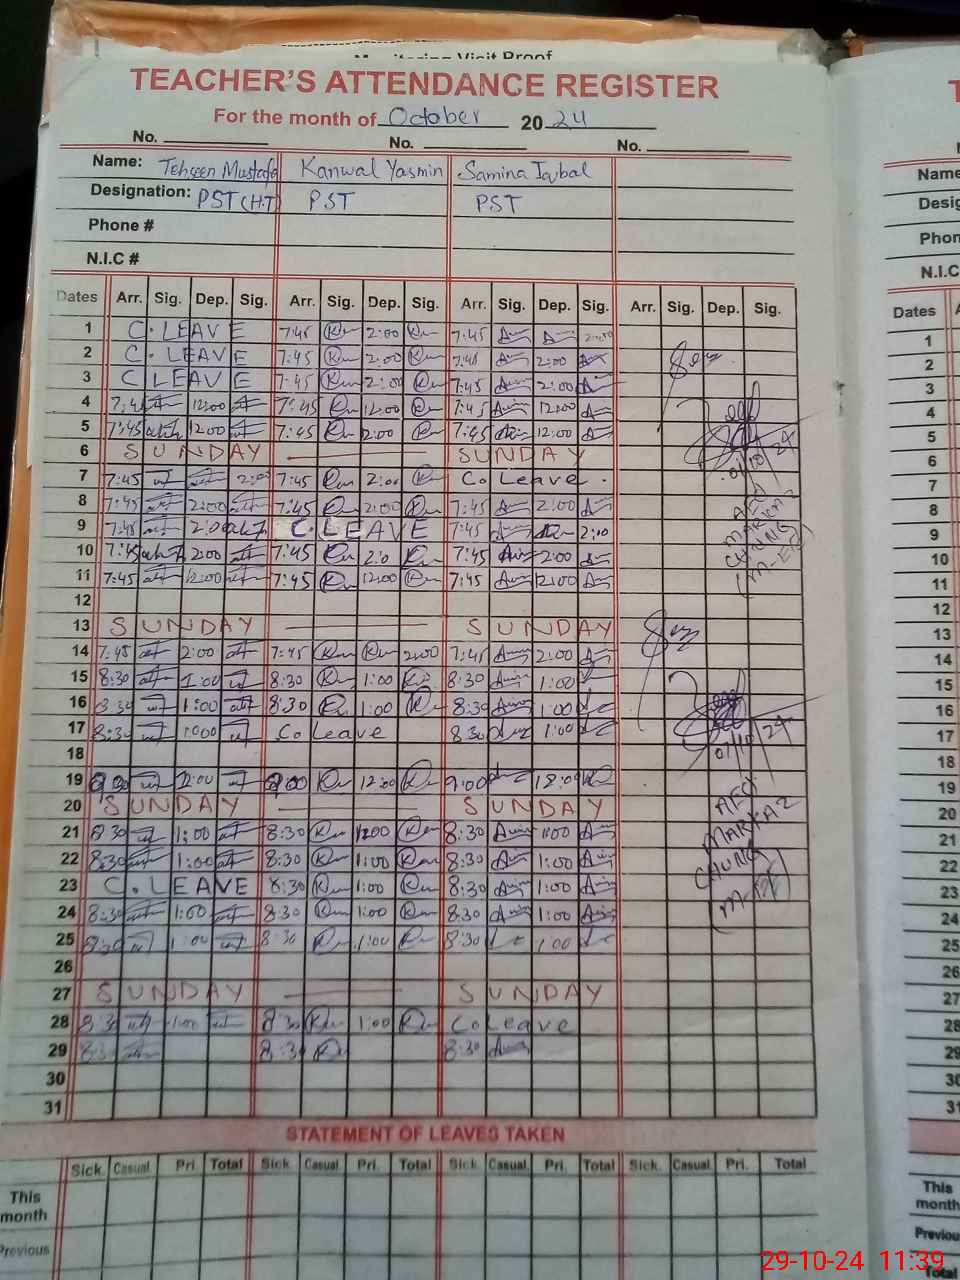 Monitoring Visit Proof
TEACHER'S ATTENDANCE REGISTER
For the month of October 2024
No. No. No.
Name: Tehseen Mustafa Kanwal Yasmin Samina Iqbal
Designation: PST (H.T) PST PST
Phone #
N.I.C #
Dates Arr. Sig. Dep. Sig. Arr. Sig. Dep. Sig. Arr. Sig. Dep. Sig. Arr. Sig. Dep. Sig.
1 C. LEAVE 7:45 2:00 7:45
2 C. LEAVE 7:45 2:00 7:45 2:00
3 C LEAVE 7:45 2:00 7:45 2:00
4 7:45 12:00 7:45 12:00 7:45 12:00
5 7:45 12:00 7:45 2:00 7:45 12:00
6 SUNDAY SUNDAY
7 7:45 2:00 7:45 2:00 Co Leave.
8 7:45 2:00 7:45 2:00 7:45 2:00
9 7:45 2:00 C. LEAVE 7:45 2:00
10 7:45 2:00 7:45 2:0 7:45 2:00
11 7:45 12:00 7:45 12:00 7:45 12:00
12
13 SUNDAY SUNDAY
14 7:45 2:00 7:45 2:00 7:45 2:00
15 8:30 1:00 8:30 1:00 8:30 1:00
16 8:30 1:00 8:30 1:00 8:30 1:00
17 8:30 1:00 Co Leave 8:30 1:00
18
19 12:00 9:00 12:00 9:00
20 SUNDAY SUNDAY
21 8:30 1:00 8:30 1:00 8:30 1:00
22 8:30 1:00 8:30 1:00 8:30 1:00
23 C. LEAVE 8:30 1:00 8:30 1:00
24 8:30 1:00 8:30 1:00 8:30 1:00
25 8:30 1:00 8:30 1:00 8:30 1:00
26
27 SUNDAY SUNDAY
28 8:30 1:00 8:30 1:00 Co Leave
29 8:30 8:30 8:30
30
31
07/10/24
AEO
MARKAZ
CHUNG
(M-EE)
07/10/24
AEO
MARKAZ
CHUNG
(M-EE)
STATEMENT OF LEAVES TAKEN
Sick Casual Pri. Total Sick. Casual Pri. Total Sick. Casual Pri. Total Sick. Casual. Pri. Total
This month
Previous
Name
Desig
Phon
N.I.C
Dates
1
2
3
4
5
6
7
8
9
10
11
12
13
14
15
16
17
18
19
20
21
22
23
24
25
26
27
28
29
30
31
This
month
Previou
Total
29-10-24 11:39